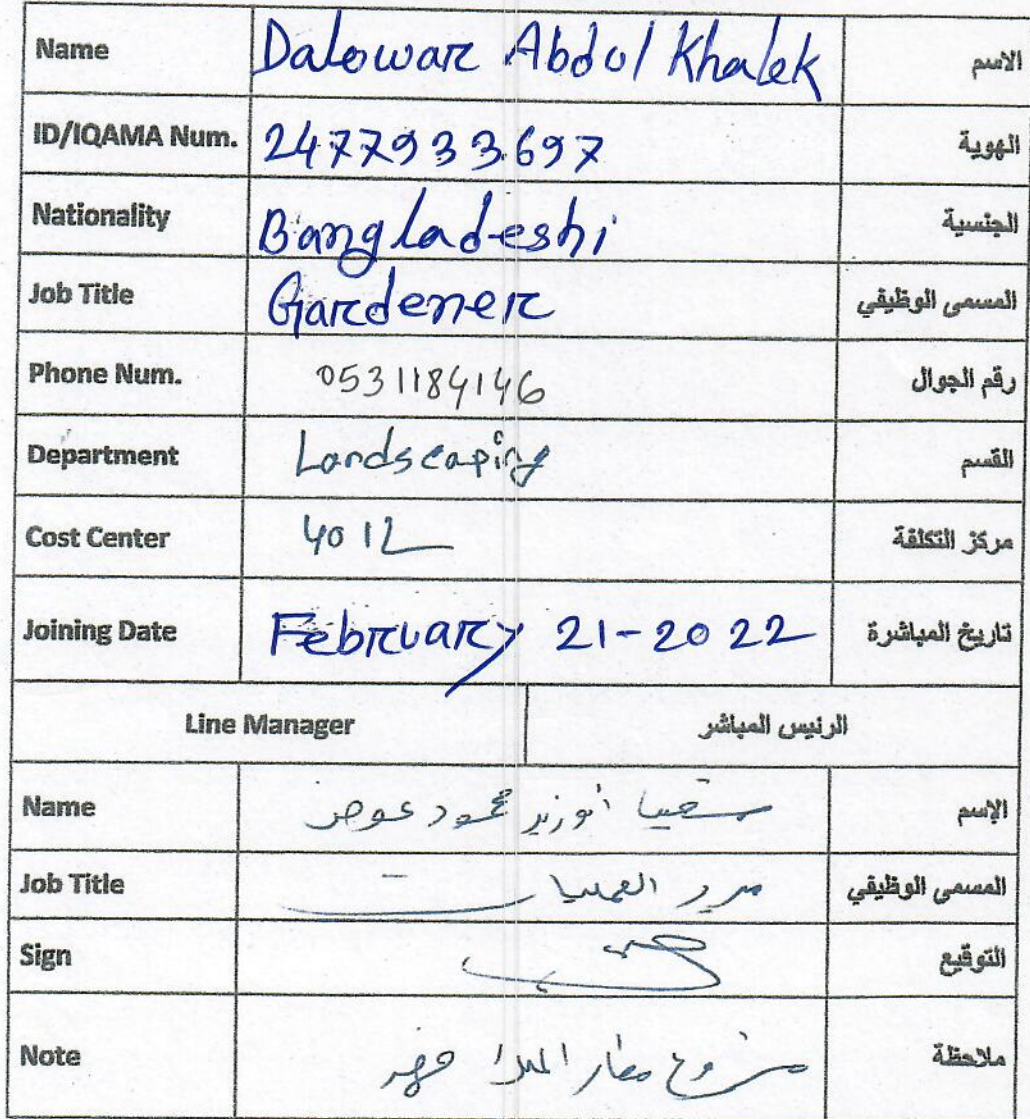 Name Dalowar Abdul Khalek الاسم
ID/IQAMA Num. 2477933697 الهوية
Nationality Bangladeshi الجنسية
Job Title Gardener المسمى الوظيفي
Phone Num. 0531184146 رقم الجوال
Department Landscaping القسم
Cost Center 4012 مركز التكلفة
Joining Date February 21-2022 تاريخ المباشرة
Line Manager الرئيس المباشر
Name محمود عوض الإسم
Job Title مدير العمليات المسمى الوظيفي
Sign التوقيع
Note مشروع مطار الملك فهد ملاحظة